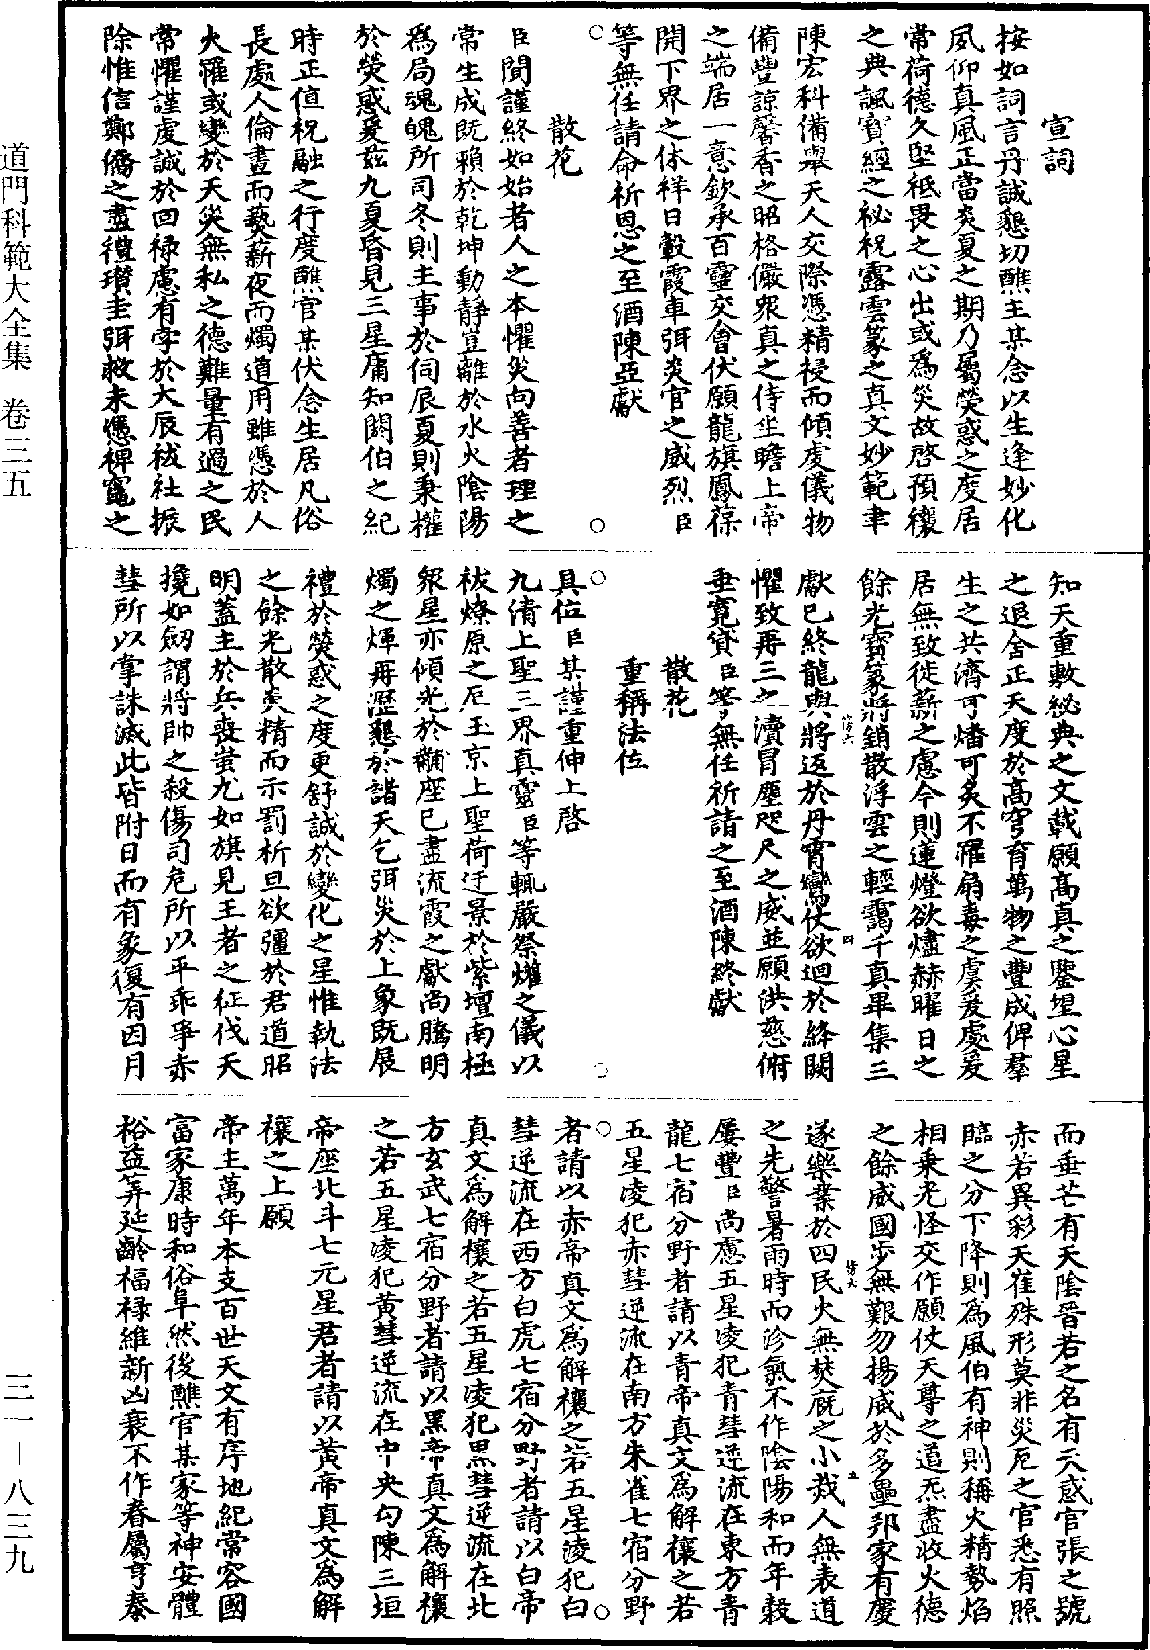 宣詞
按如詞言丹誠懇切醮主某念以生逢妙化
夙仰真風正當炎夏之期乃屬熒惑之度居
常荷德久堅祇畏之心出或為災故啓預禳
之典諷寶經之祕祝露雲篆之真文妙範聿
陳宏科備舉天人交際憑精祲而傾虔儀物
備豐諒馨香之昭格儼眾真之侍坐瞻上帝
之端居一意欽承百靈交會伏願龍旗鳳葆
開下界之休祥日轂霞車弭炎官之威烈臣
等無任請命祈恩之至酒陳亞獻
散花
臣聞謹終如始者人之本懼災向善者理之
常生成既賴於乾坤動靜豈離於水火陰陽
為局魂魄所司冬則主事於伺辰夏則秉權
於熒惑爰茲九夏昏見三星庸知閼伯之紀
時正值祝融之行度醮官某伏念生居凡俗
長處人倫晝而爇薪夜而燭道用雖憑於人
火罹或變於天災無私之德難量有過之民
常懼謹虔誠於回祿慮有孛於大辰祓社振
除惟信鄭僑之盡禮瓚圭弭救未憑裨竈之
知天重敷祕典之文載願高真之鑒垠心星
之退舍正天度於高穹育萬物之豐成俾羣
生之共濟可燔可炙不罹扇毒之虞爰處爰
居無致徙薪之慮今則蓮燈欲燼赫曜日之
餘光寶篆將銷散浮雲之輕靄千真畢集三
獻已終龍輿將返於丹霄鸞仗欲迴於絳闕
懼致再三之瀆冒塵咫尺之威並願洪慈俯
垂寬貸臣等無任祈請之至酒陳終獻
散花
重稱法位
具位臣某謹重伸上啓
九清上聖三界真靈臣等輒嚴祭爟之儀以
祓燎原之厄玉京上聖荷迂景於紫壇南極
眾星亦傾光於黼座已盡流霞之獻尚騰明
燭之煇再瀝懇於諸天乞弭災於上象既展
禮於熒惑之度更舒誠於變化之星惟執法
之餘光散熒精而示罰析旦欲彊於君道昭
明蓋主於兵喪蚩尤如旗見王者之征伐天
攙如劒謂將帥之殺傷司危所以平乖爭赤
彗所以掌誅滅此皆附日而有象復有因月
而垂芒有天陰晉若之名有天惑官張之號
赤若異彩天雀殊形莫非災厄之官悉有照
臨之分下降則為風伯有神則稱火精勢焰
相乘光怪交作願仗天尊之道炁盡收火德
之餘威國步無艱勿揚威於多壘邦家有慶
遂樂業於四民火無焚廐之小烖人無表道
之先警暑雨時而沴氣不作陰陽和而年穀
屢豐臣尚慮五星凌犯青彗逆流在東方青
龍七宿分野者請以青帝真文為解禳之若
五星凌犯赤彗逆流在南方朱雀七宿分野
者請以赤帝真文為解禳之若五星凌犯白
彗逆流在西方白虎七宿分野者請以白帝
真文為解禳之若五星凌犯黑彗逆流在北
方玄武七宿分野者請以黑帝真文為解禳
之若五星凌犯黃彗逆流在中央勾陳三垣
帝座北斗七元星君者請以黃帝真文為解
禳之上願
帝主萬年本支百世天文有序地紀常容國
富家康時和俗阜然後醮官某家等神安體
裕益筭延齡福祿維新凶衰不作眷屬亨泰
道門科範大全集 卷三五
三一—八三九